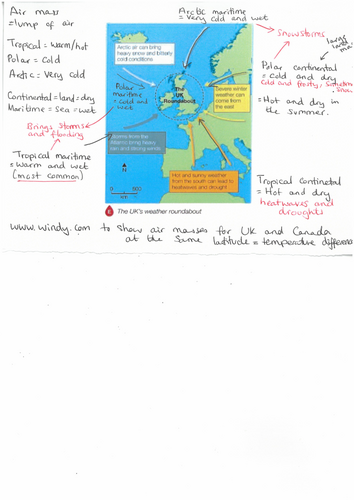 Air mass
= lump of air
Tropical = warm/hot
Polar = Cold
Arctic = Very cold
Continental = land = dry
Maritime = sea = wet
Brings storms
and flooding
Tropical maritime
= warm and wet
(most common)
Arctic maritime
= Very cold and wet
Snowstorms
large
land
Polar continental
= cold and dry
cold and frosty,
= Hot and dry in
the summer.
Tropical continetal
= Hot and dry
heatwaves and
droughts
Arctic air can bring
heavy snow and bitterly
cold conditions
Polar
maritime
= cold and
wet
The
UK
Roundabout
Severe winter
weather can
come from
the east
Storms from the
Atlantic bring heavy
rain and strong winds
Hot and sunny weather
from the south can lead to
heatwaves and drought
N
0
km
The UK's weather roundabout
www.windy.com to show air masses for UK and Canada
at the same latitude = temperature differen